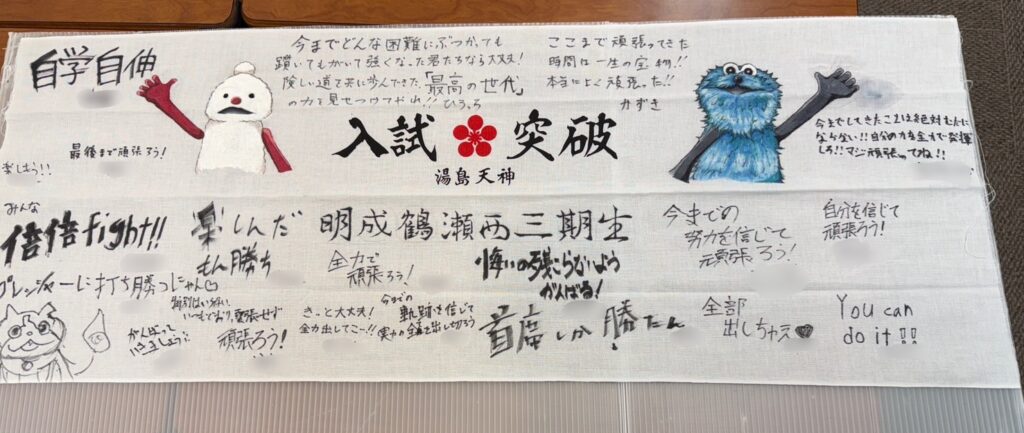 自学自伸
今までどんな困難にぶつかっても
躓いてもがいて強くなった君たちなら大丈夫!
険しい道を共に歩んできた「最高の世代」
の力を見せつけてやれ!! ひろっち
ここまで頑張ってきた
時間は一生の宝物!!
本当によく頑張った!!
かずき
楽しもう!!
最後まで頑張ろう!
入試突破
湯島天神
今までしてきたことは絶対むだに
ならない!!自分の力を全力で発揮
しろ!!マジ頑張ってね!!
みんな
倍倍fight!!
楽しんだ
もん勝ち
明成鶴瀬西三期生
全力で
頑張ろう!
悔いの残こらないよう
がんばる!
今までの
努力を信じて
頑張ろう!
自分を信じて
頑張ろう!
プレッシャーに打ち勝つにゃん♡
がんばって
いきましょう
特別はいらない
いつもどおり、緊張せず
頑張ろう!
きっと大丈夫!
全力出してこー!!
今までの
軌跡を信じて
実力の全てを出し切ろう
首席しか勝たん!
全部
出しちゃえ♥
You can
do it!!